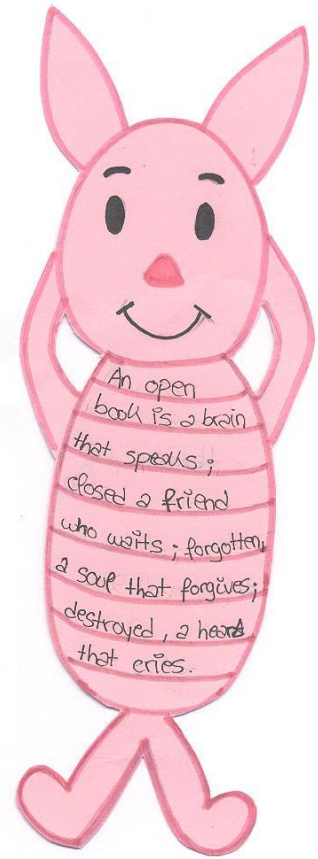 An open
book is a brain
that speaks;
closed a friend
who waits; forgotten,
a soul that forgives;
destroyed, a heart
that cries.